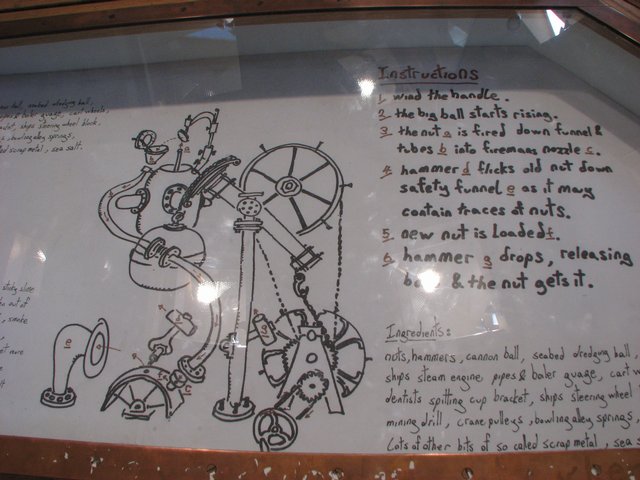 ball, seabed dredging ball,
guage, cart wheels,
ships steering wheel block,
bowling alley springs,
scrap metal, sea salt.
Instructions
1 wind the handle.
2 the big ball starts rising.
3 the nut a is fired down funnel &
tubes b into firemans nozzle c.
4 hammer d flicks old nut down
safety funnel e as it may
contain traces of nuts.
5 new nut is loaded f.
6 hammer g drops, releasing
& the nut gets it.
out of
smoke
more
Ingredients:
nuts, hammers, cannon ball, seabed dredging ball,
ships steam engine pipes & boiler guage, cart
dentists spitting cup bracket, ships steering wheel
mining drill, crane pulleys, bowling alley springs,
Lots of other bits of so called scrap metal, sea